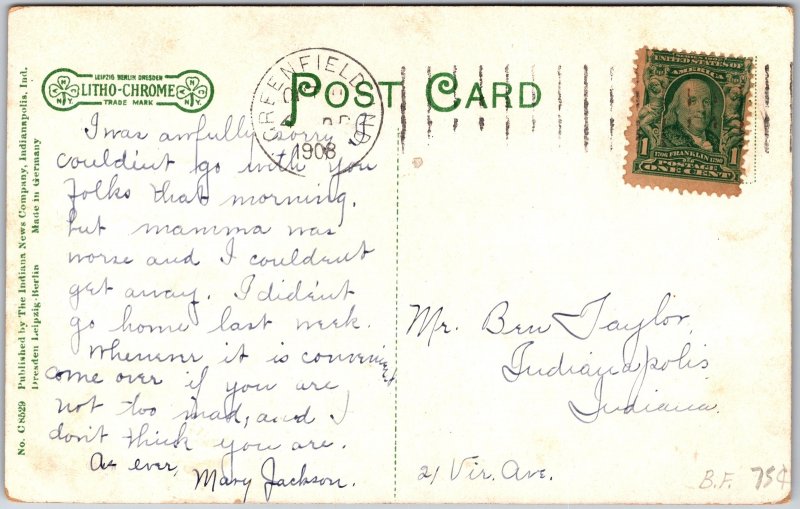 No. C 8529 Published by The Indiana News Company, Indianapolis, Ind.
Dresden-Leipzig-Berlin Made in Germany
LEIPZIG BERLIN DRESDEN
LITHO-CHROME
TRADE MARK
N Y
N Y
POST CARD
GREENFIELD IND
1908
UNITED STATES OF
AMERICA
1706 FRANKLIN 1790
1 1
POSTAGE
ONE CENT
I was awfully sorry I
couldent go with you
folks that morning.
but mamma was
worse and I couldent
get away. I dident
go home last week.
Whenever it is convenient
come over if you are
not too mad, and I
don't think you are.
As ever,
Mary Jackson.
Mr. Ben Taylor,
Indianapolis
Indiana.
21 Vir. Ave.
B.F. 75¢